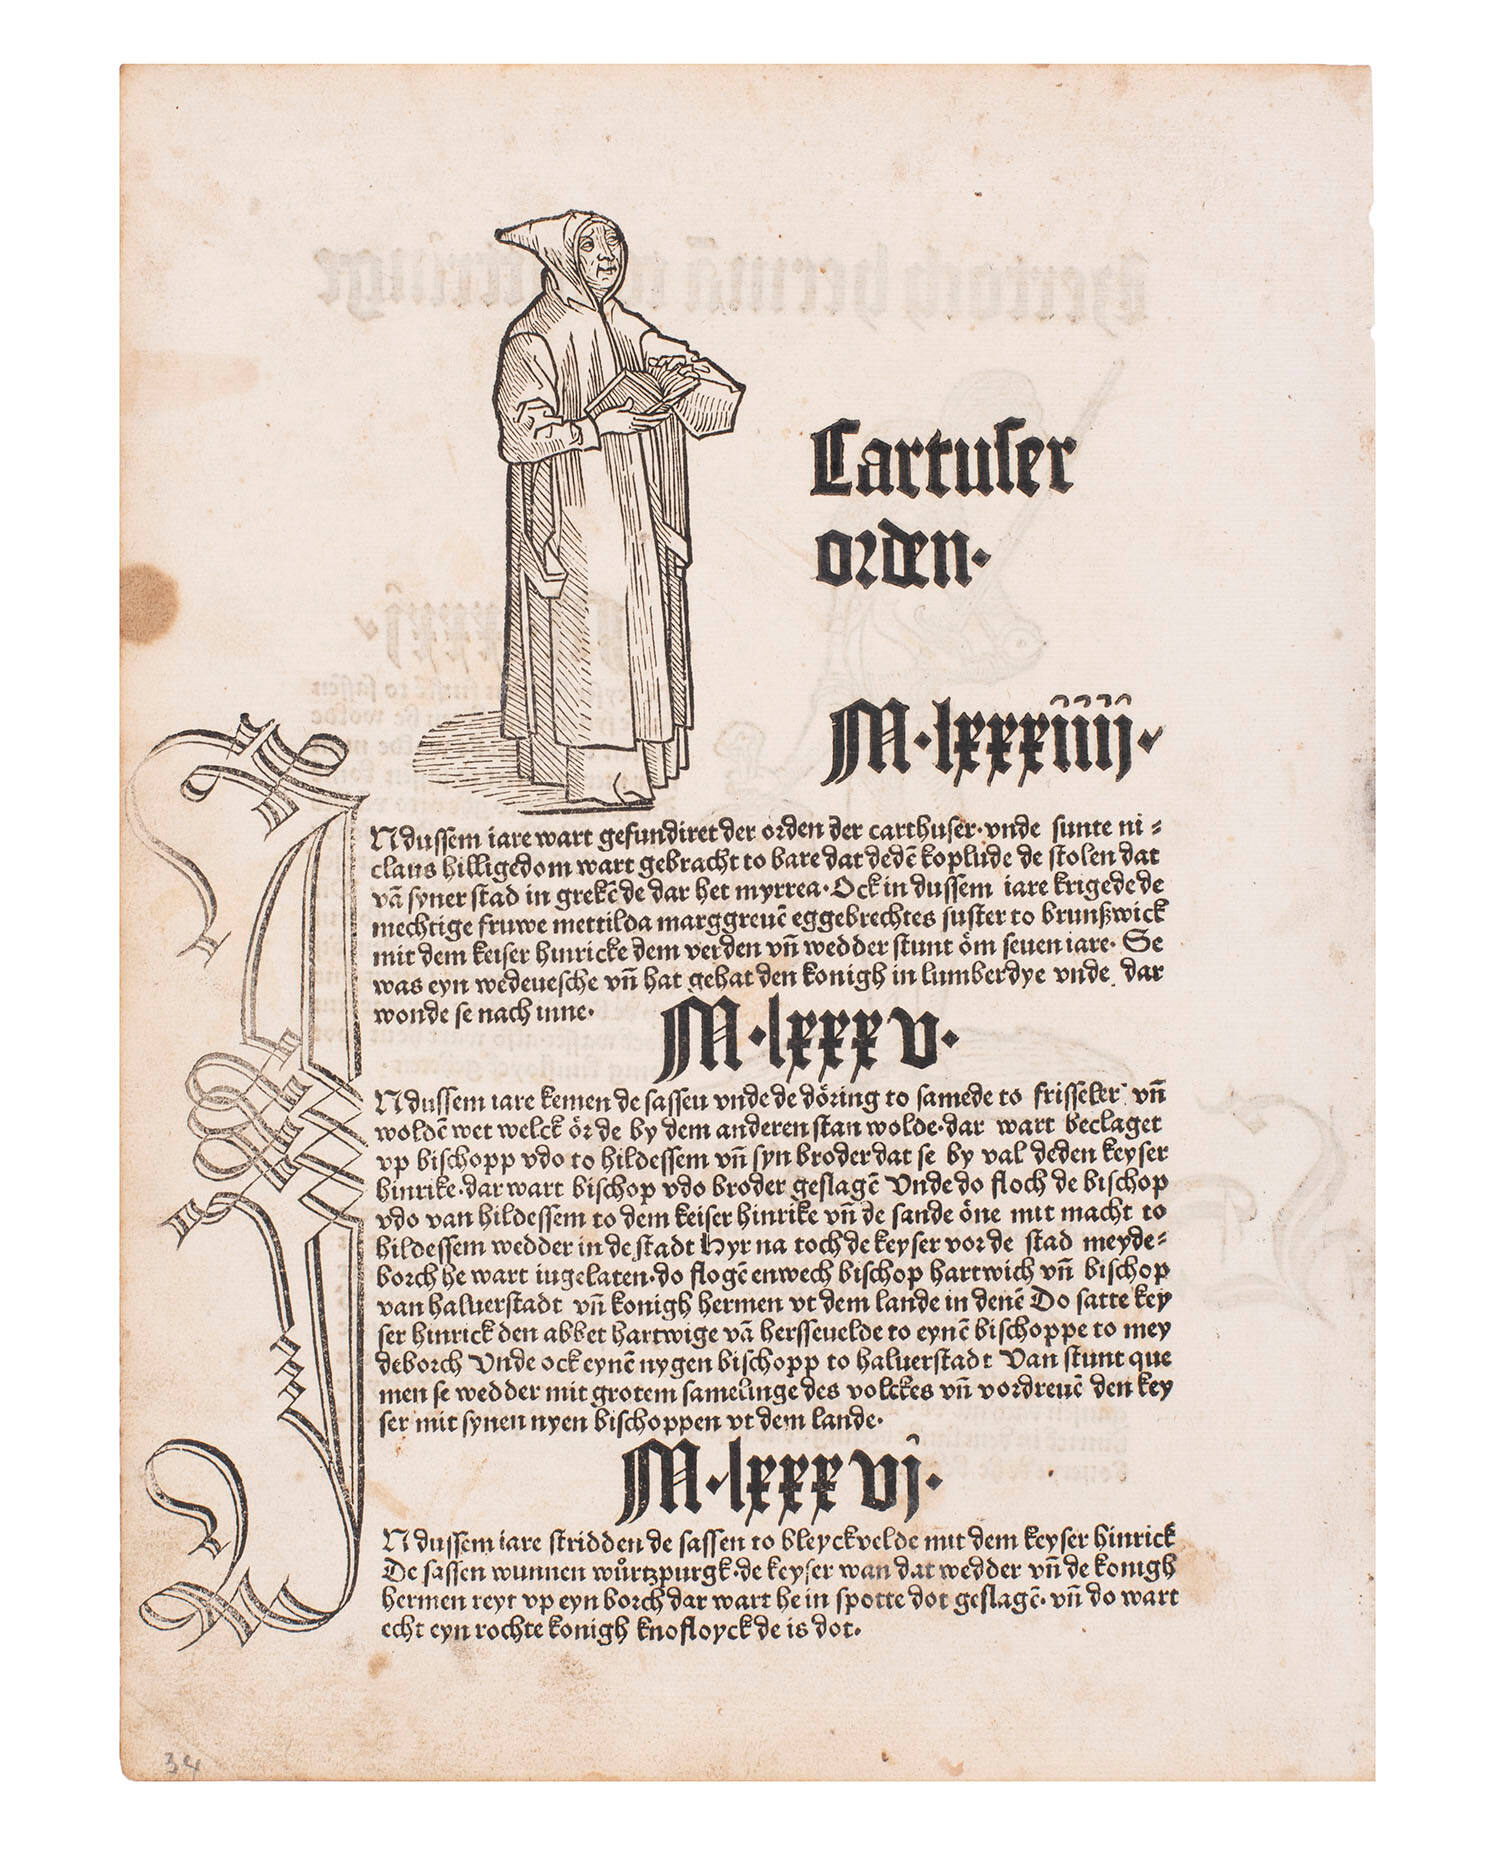 Cartuser
orden·
M·lxxxiiij·
N dussem iare wart gefundiret der orden der carthuser·vnde sunte ni⸗
claus hilligedom wart gebracht to bare dat dedē koplude de stolen dat
vā syner stad in grekē de dar het myrrea· Ock in dussem iare krigede de
mechtige fruwe mettilda marggreuē eggebrechtes suster to brunßwick
mit dem keiser hinricke dem verden vn̄ wedder stunt öm seuen iare· Se
was eyn wedeuesche vn̄ hat gehat den konigh in lumberdye vnde dar
wonde se nach inne·
M·lxxxv·
N dussem iare kemen de sassen vnde de döring to samede to frisseler vn̄
woldē wet welck ör de by dem anderen stan wolde·dar wart beclaget
vp bischopp vdo to hildessem vn̄ syn broder dat se by val deden keyser
hinrike·dar wart bischop vdo broder geslagē Vnde do floch de bischop
vdo van hildessem to dem keiser hinrike vn̄ de sande öne mit macht to
hildessem wedder in de stadt Hyr na toch de keyser vor de stad meyde⸗
borch he wart ingelaten·do flogē enwech bischop hartwich vn̄ bischop
van haluerstadt vn̄ konigh hermen vt dem lande in denē Do satte key
ser hinrick den abbet hartwige vā hersseuelde to eynē bischoppe to mey
deborch Vnde ock eynē nygen bischopp to haluerstadt Van stunt que
men se wedder mit grotem samelīnge des volckes vn̄ vordreuē den key
ser mit synen nyen bischoppen vt dem lande·
M·lxxxvj·
N dussem iare stridden de sassen to bleyckvelde mit dem keyser hinrick
De sassen wunnen wůrtzpurgk·de keyser wan dat wedder vn̄ de konigh
hermen reyt vp eyn borch dar wart he in spotte dot geslagē· vn̄ do wart
echt eyn rochte konigh knofloyck de is dot·
34